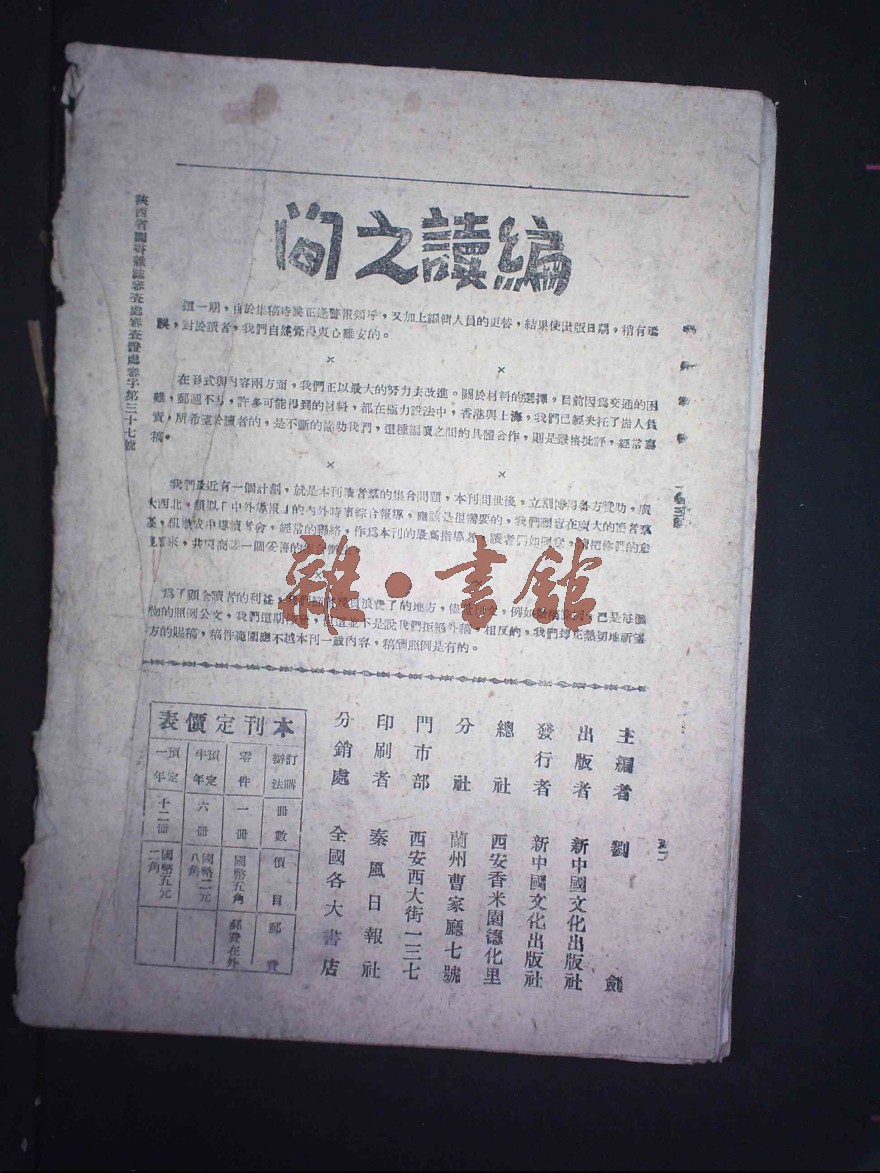 編讀之間
這一期，由於集稿時候正逢警報頻乎，又加上編輯人員的更替，結果使出版日期，稍有遲
誤，對於讀者，我們自然覺得衷心難安的。
×　×
在形式與內容兩方面，我們正以最大的努力去改進。關於材料的選擇，目前因爲交通的困
難，郵遞不易，許多可能得到的材料，都在竭力設法中，香港與上海，我們已經央托了專人負
責，所希望於讀者的，是不斷的協助我們，這種編讀之間的具體合作，則是嚴格批評，經常惠
稿。
×　×
我們最近有一個計劃，就是本刊讀者羣的集合問題，本刊問世後，立刻博得各方贊助，廣
大西北，類似「中外導報」的內外時事綜合報導，應該是很需要的，我們願意在廣大的讀者羣
基，組織成中導讀者會，經常的聯絡，作爲本刊的最高指導者，讀者們如同意，請把你們的意
見寄來，共同商談一個妥善的集合辦法。
×
爲了顧全讀者的利益，我們
浪費了的地方，儘
例如
，已是每個
物的照例公文，我們這期
，但這並不是說我們拒絕外稿，相反的，我們
熱切地祈望
方的賜稿，稿件範圍應不越本刊一般內容，稿酬照例是有的。
主編者　劉　劍
出版者　新中國文化出版社
發行者　新中國文化出版社
總社　西安香米園德化里
分社　蘭州曹家廳七號
門市部　西安西大街一三七
印刷者　秦風日報社
分銷處　全國各大書店
本刊定價表
訂購辦法　冊數　價目　郵費
零件　一冊　國幣五角　郵費在外
預定半年　六冊　國幣二元八角
預定一年　十二冊　國幣五元二角
陝西省圖書雜誌審查處審查證處審字第三十七號
雜·書館